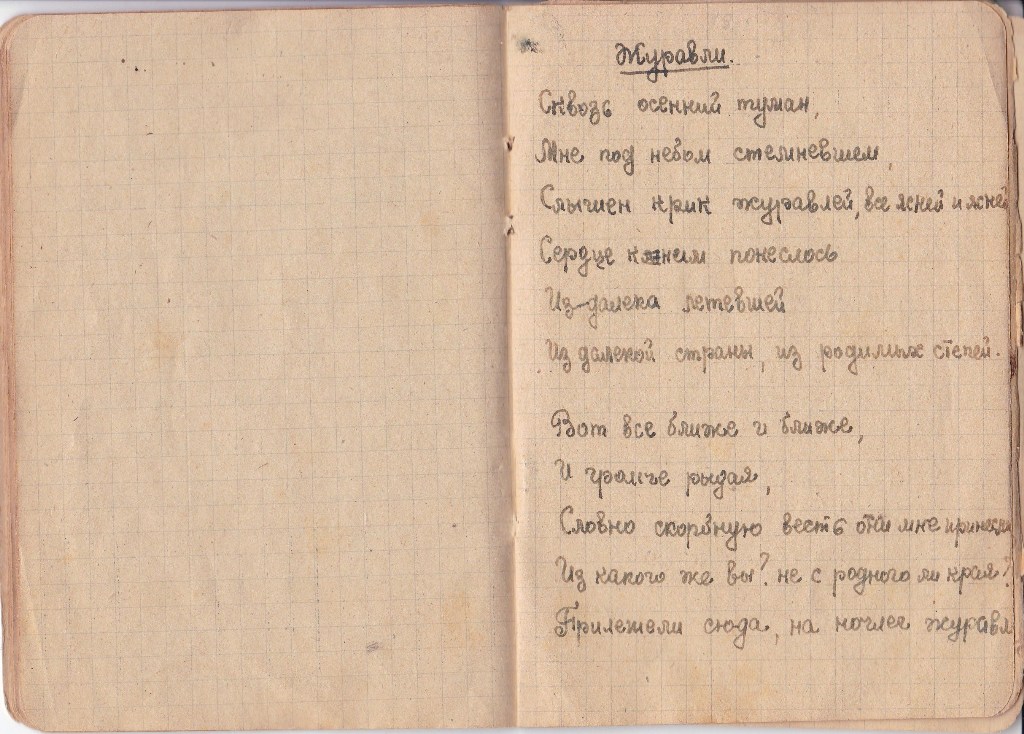 Журавли.
Сквозь осенний туман,
Мне под небом стемневшем,
Слышен крик журавлей, все ясней и ясней
Сердце к ним понеслось
Из далека летевшей
Из далекой страны, из родимых степей.
Вот все ближе и ближе,
И громче рыдая,
Словно скорбную весть мне
Из какого же вы? не с родного ли края?
Прилетели сюда, на ночлег журавл